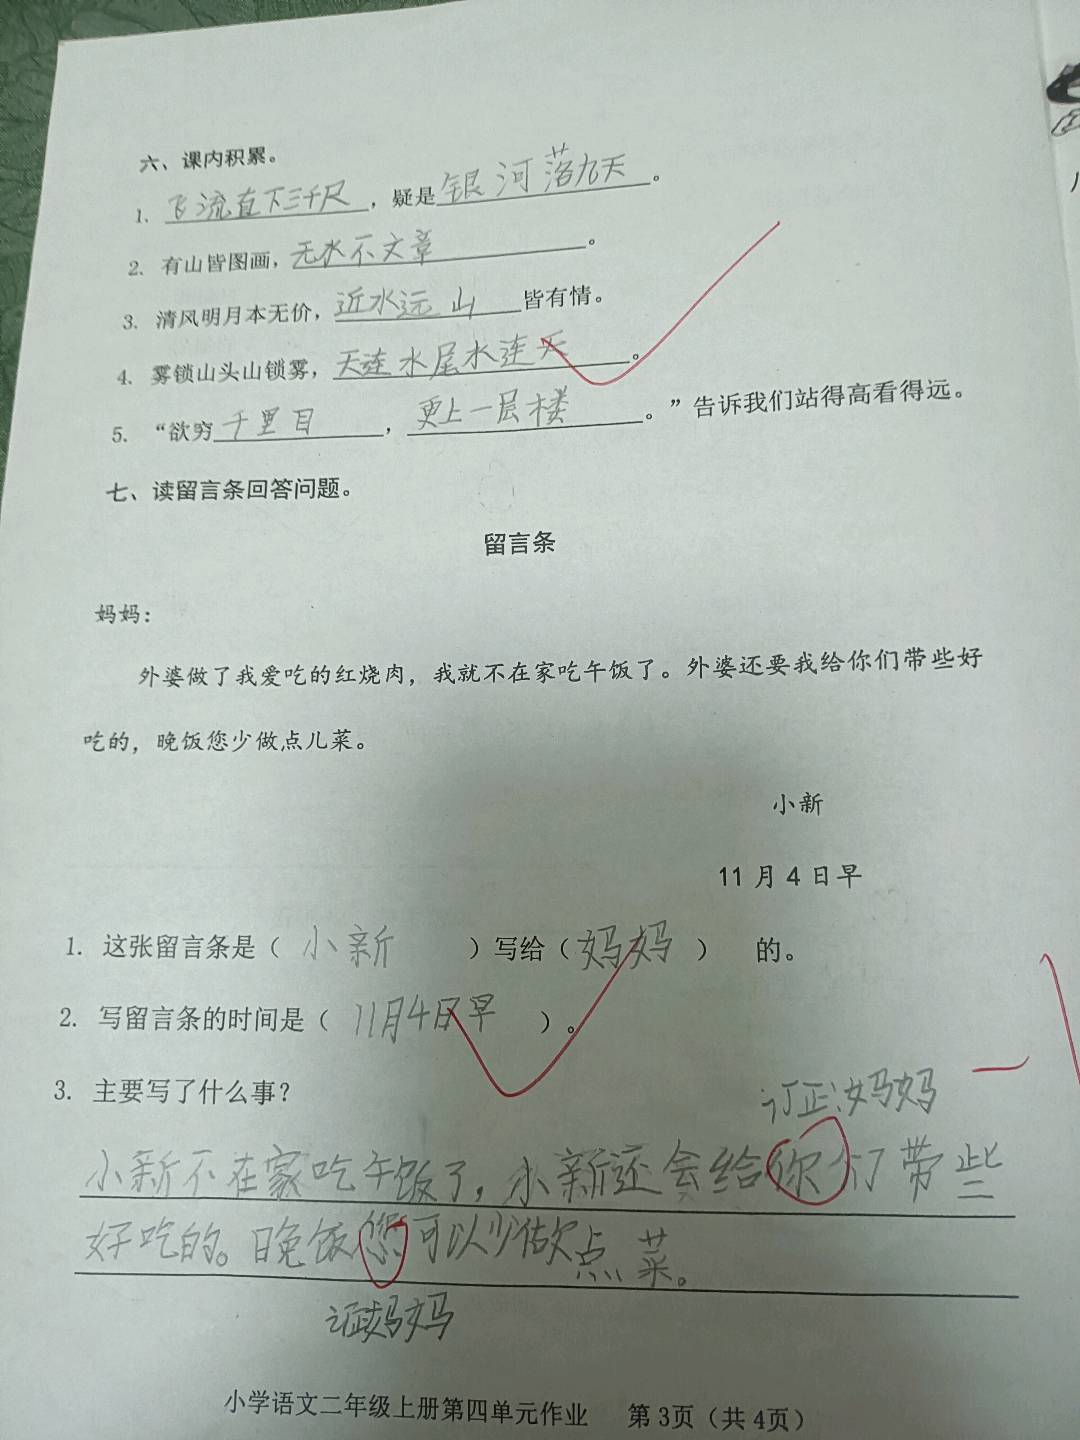 六、课内积累。
1. 飞流直下三千尺，疑是银河落九天。
2. 有山皆图画，无水不文章。
3. 清风明月本无价，近水远山皆有情。
4. 雾锁山头山锁雾，天连水尾水连天。
5. “欲穷千里目，更上一层楼。”告诉我们站得高看得远。
七、读留言条回答问题。
留言条
妈妈：
外婆做了我爱吃的红烧肉，我就不在家吃午饭了。外婆还要我给你们带些好
吃的，晚饭您少做点儿菜。
小新
11月4日早
1. 这张留言条是（小新）写给（妈妈）的。
2. 写留言条的时间是（11月4日早）。
3. 主要写了什么事？
订正：妈妈
小新不在家吃午饭了，小新还会给你们带些
好吃的。晚饭您可以少做点菜。
订正妈妈
小学语文二年级上册第四单元作业 第3页（共4页）